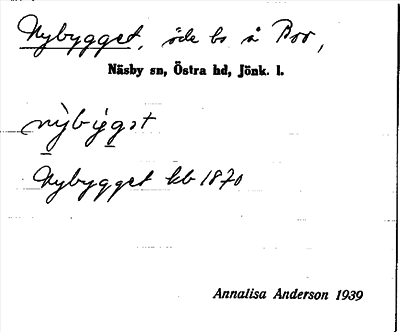 Nybygget, öde bs å Boo,
Näsby sn, Östra hd, Jönk. l.
nỳbýgət
Nybygget kb 1870
Annalisa Anderson 1939